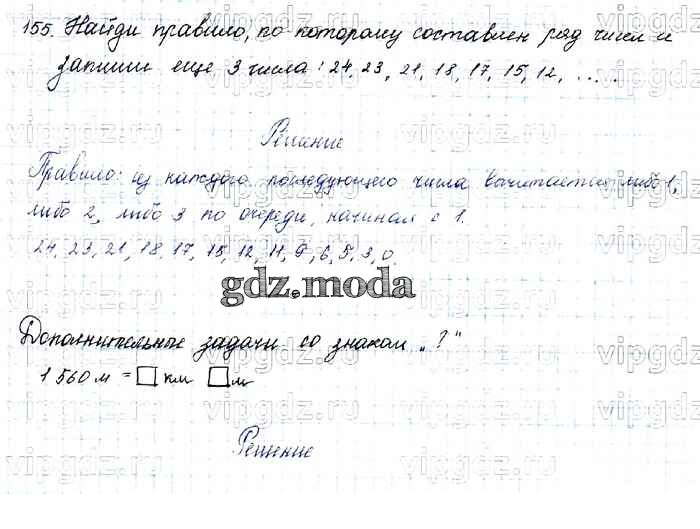 155. Найди правило, по которому составлен ряд чисел и
запиши еще 3 числа: 24, 23, 21, 18, 17, 15, 12, .....
Решение
Правило: из каждого последующего числа вычитается либо 1,
либо 2, либо 3 по очереди, начиная с 1.
24, 23, 21, 18, 17, 15, 12, 11, 9, 6, 5, 3, 0.
gdz.moda
Дополнительные задачи со знаком „?“
1 560 м = □ км □ м
Решение